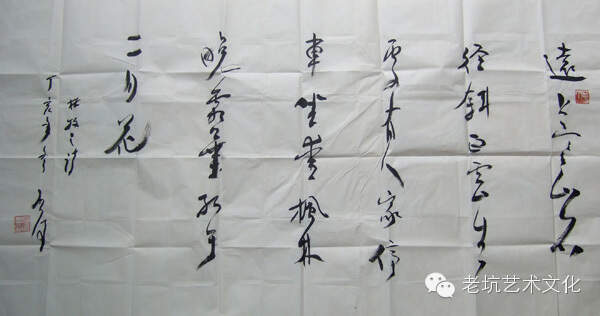 遠上寒山石
徑斜白雲生
處有人家停
車坐愛楓林
晚霜葉紅於
二月花
杜牧之詩
丁亥年
老坑艺术文化